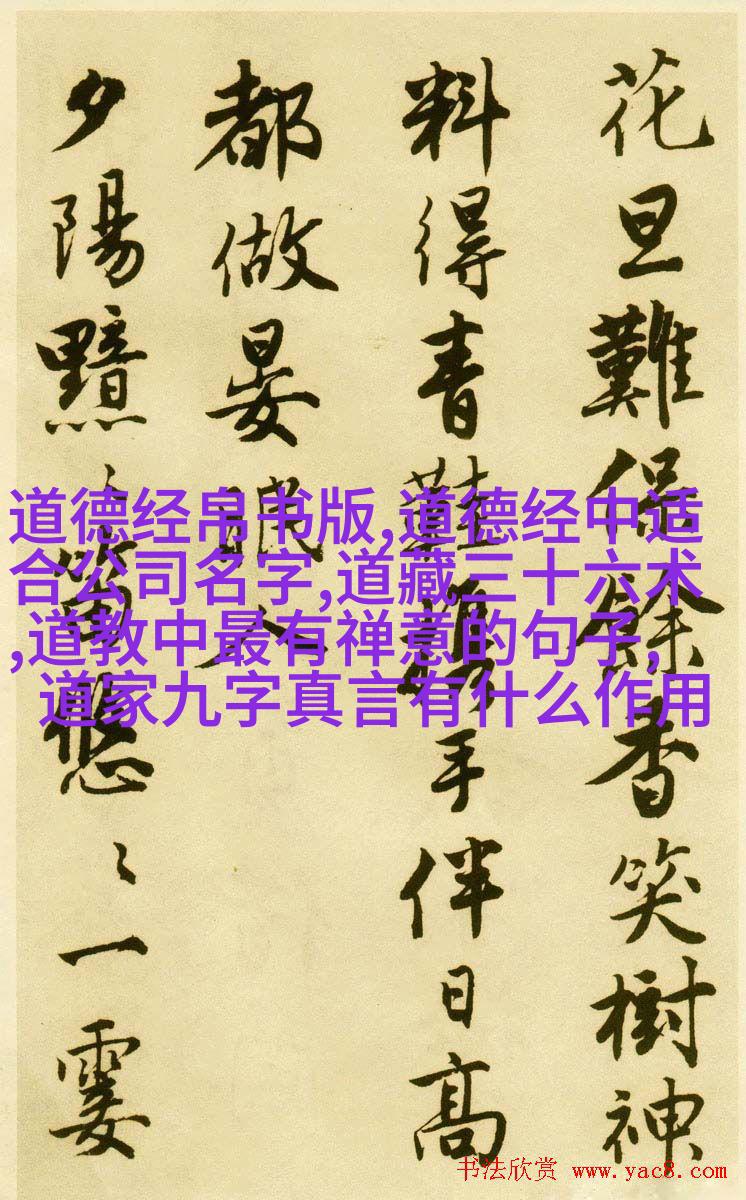 花旦難保餘香笑樹神
料得青鞋攜手伴日高
都做晏眠人
夕陽黯〻笛悠〻一霎
道德经帛书版,道德经中适
合公司名字,道藏三十六术
,道教中最有禅意的句子,
道家九字真言有什么作用
书法欣赏 www.yac8.com